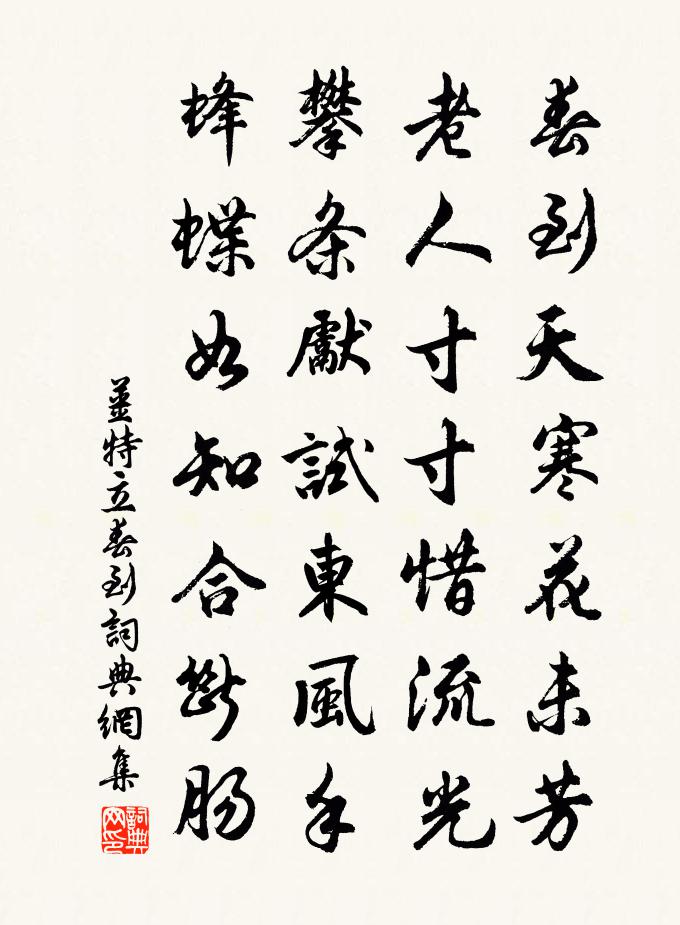 春到天寒花未芳
老人寸寸惜流光
攀条獻試東風手
蜂蝶如知合断肠
姜特立春到詞典網集
詞典网印